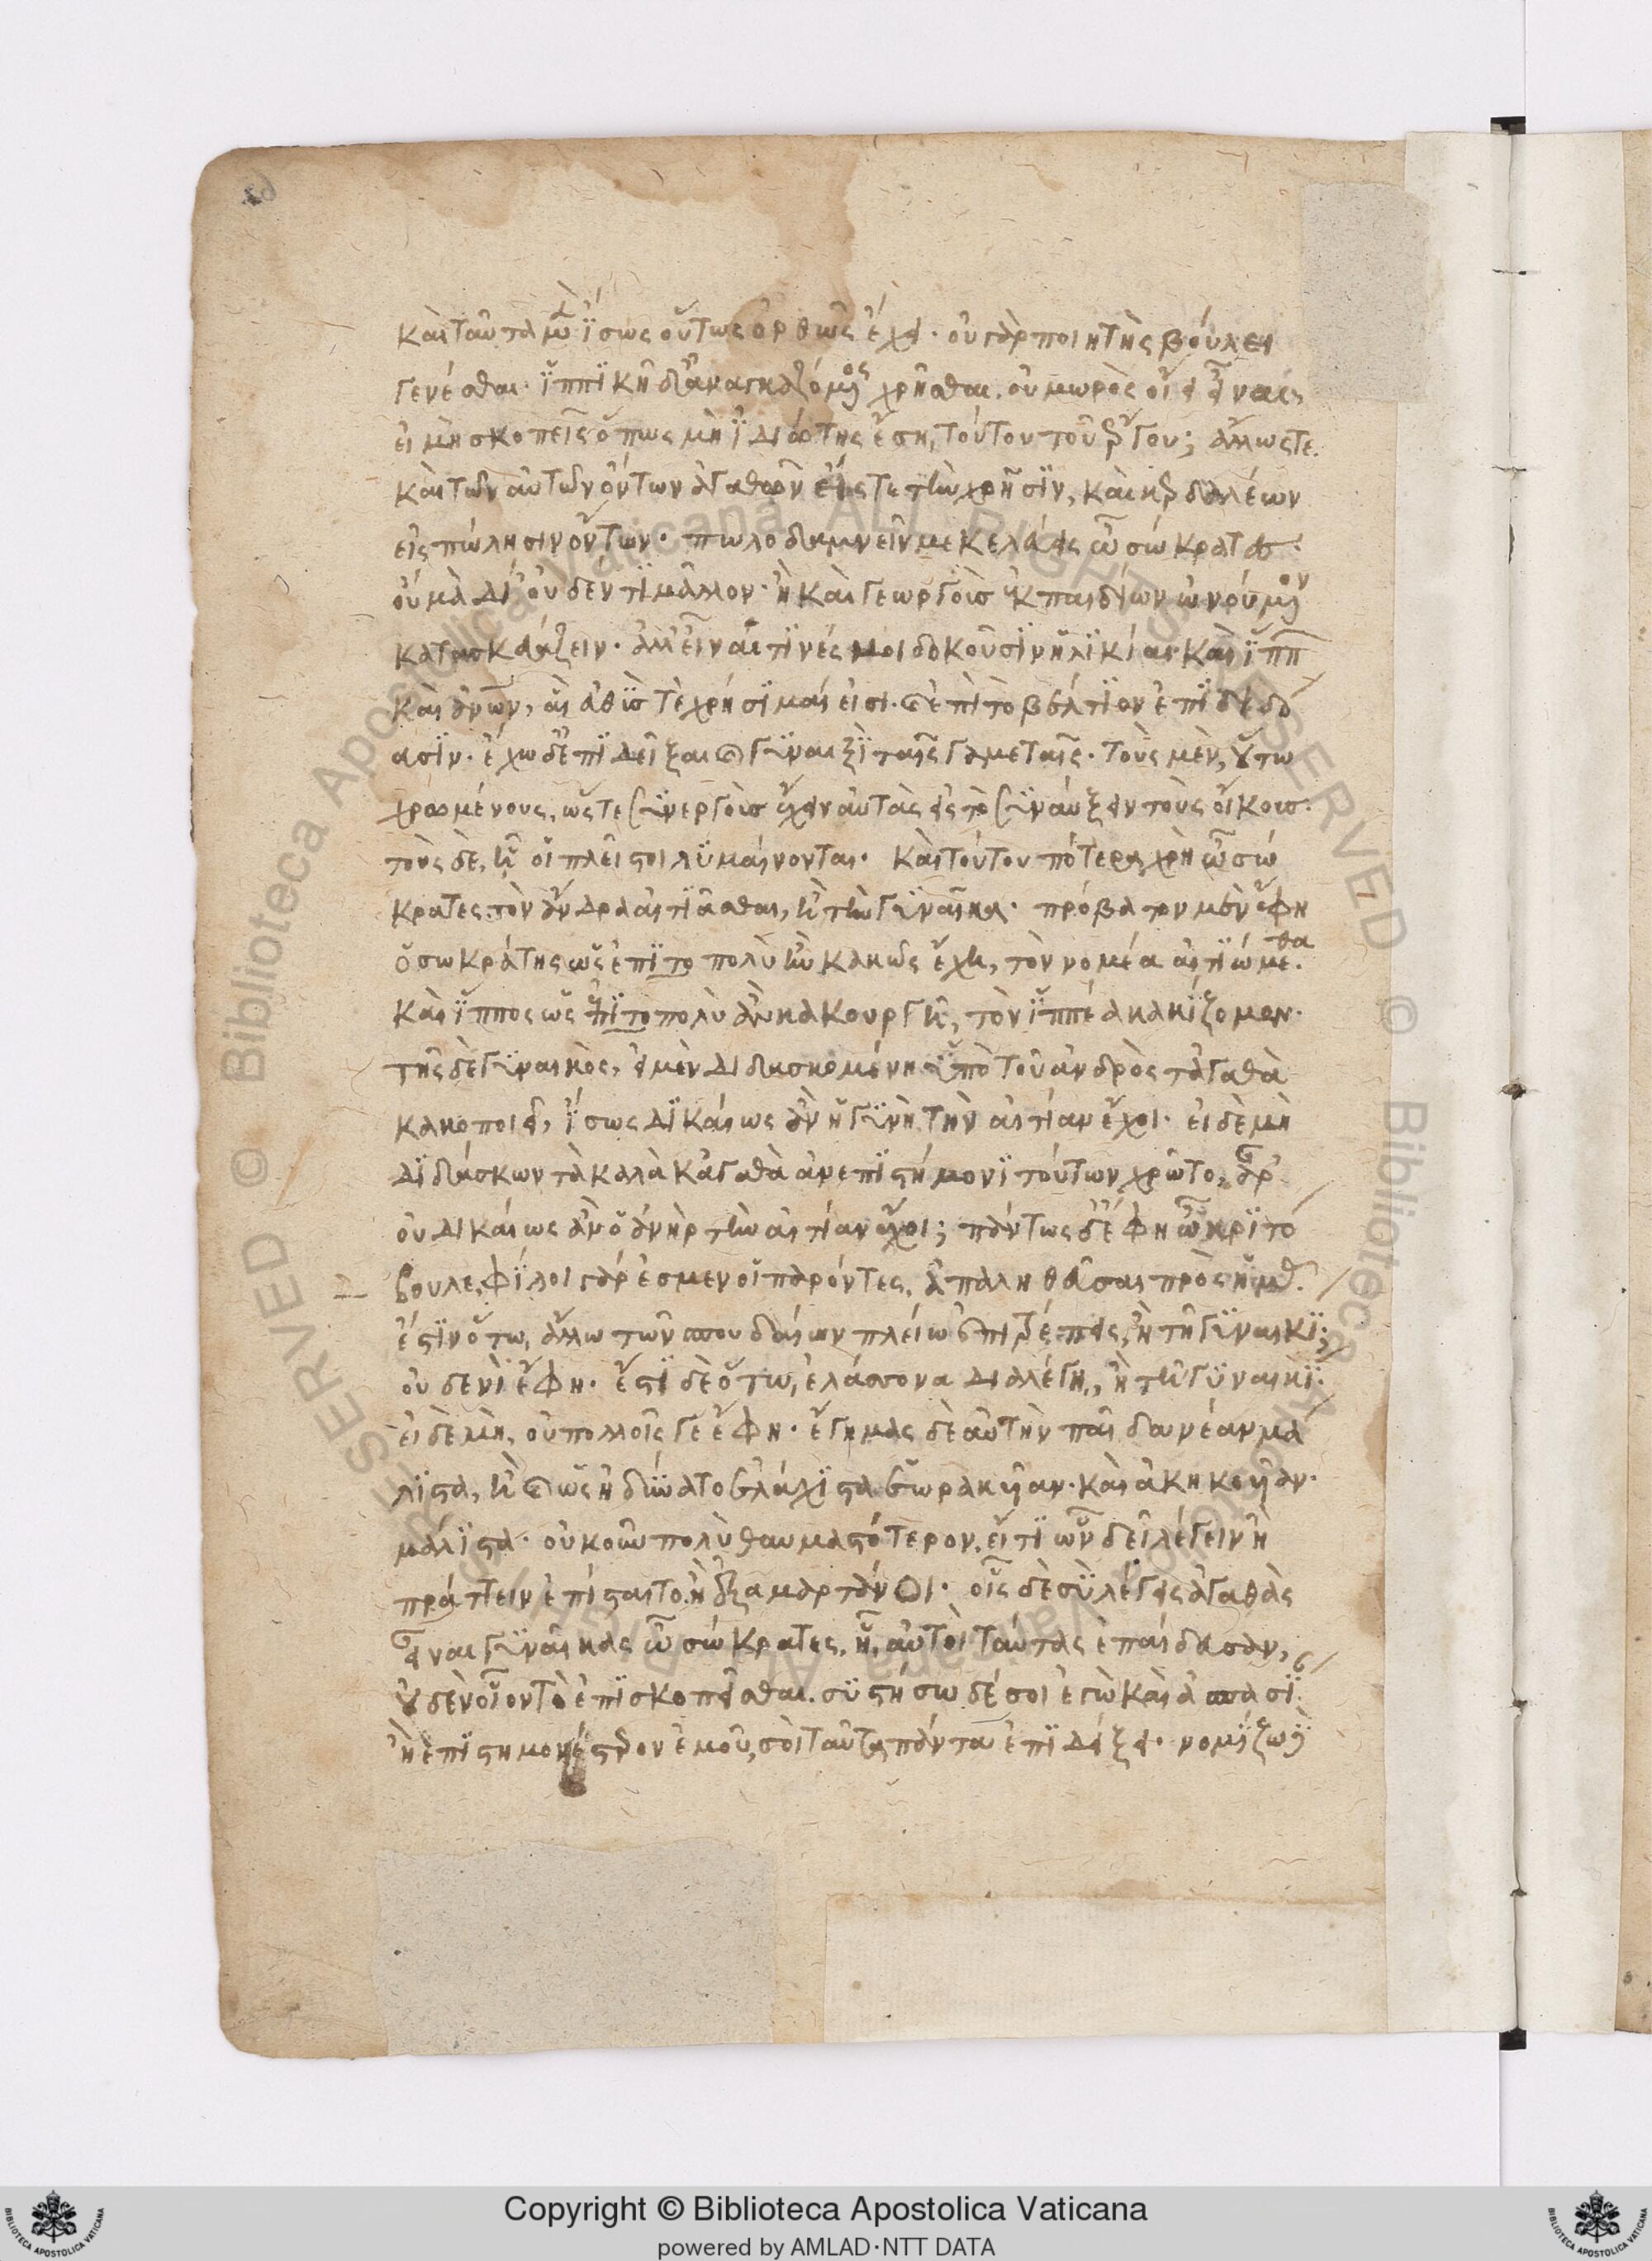 καὶ ταῦτα μὲν ἴσως οὕτως ὀρθῶς ἔχει· οὐ γὰρ ποιητὴς βούλει
γενέσθαι· ἱππικῇ δ' ἀναγκαζόμενος χρῆσθαι. οὐ μωρὸς οἴει εἶναι,
εἰ μὴ σκοπεῖς ὅπως μὴ ἰδιώτης ἔσῃ, τούτου τοῦ ἔργου; ἄλλως τε.
καὶ τῶν αὐτῶν ὄντων ἀγαθῶν εἴς τε τὴν χρῆσιν, καὶ κερδαλέων
εἰς πώλησιν ὄντων· πωλοδαμνεῖν με κελεύεις ὦ σώκρατες·
οὐ μὰ Δί' οὐδέν τι μᾶλλον· ἢ καὶ γεωργοὺς ἐκ παιδίων ὠνούμενον
κατασκευάζειν· ἀλλ' εἶναί τινές μοι δοκοῦσιν ἡλικίαι καὶ ἵππ
καὶ ἀνων, αἳ εὐθύς τε χρήσιμαί εἰσι. καὶ ἐπὶ τὸ βέλτιον ἐπιδιδό
ασιν· ἔχω δ' ἐπιδεῖξαι καὶ γυναιξὶ ταῖς γαμεταῖς· τοὺς μὲν, οὕτω
χρωμένους, ὥστε συνεργοὺς ἔχειν αὐτὰς εἰς τὸ συναύξειν τοὺς οἴκους·
τοὺς δὲ, ᾗ οἱ πλεῖστοι λυμαίνονται· καὶ τούτου πότερα χρὴ ὦ σώ
κρατες τὸν ἄνδρα αἰτιᾶσθαι, ἢ τὴν γυναῖκα· πρόβατον μὲν ἔφη
ὁ σωκράτης ὡς ἐπὶ τὸ πολὺ ἢν κακῶς ἔχῃ, τὸν νομέα αἰτιώμεθα.
καὶ ἵππος ὡς ἐπὶ τὸ πολὺ ἂν κακουργῇ, τὸν ἱππέα κακίζομεν·
τῆς δὲ γυναικὸς, εἰ μὲν διδασκομένη ὑπὸ τοῦ ἀνδρὸς τἀγαθὰ
κακοποιεῖ, ἴσως δικαίως ἂν ἡ γυνὴ τὴν αἰτίαν ἔχοι· εἰ δὲ μὴ
διδάσκων τὰ καλὰ κἀγαθὰ ἀνεπιστήμονι τούτων χρῷτο, ἆρ'
οὐ δικαίως ἂν ὁ ἀνὴρ τὴν αἰτίαν ἔχοι; πάντως δ' ἔφη ὦ κριτό
βουλε, φίλοι γάρ ἐσμεν οἱ παρόντες, ἀπαληθεῦσαι πρὸς ἡμᾶς.
ἔστιν ὅτῳ, ἄλλῳ τῶν σπουδαίων πλείω ἐπιτρέπεις, ἢ τῇ γυναικί;
οὐδενὶ ἔφη· ἔστι δὲ ὅτῳ, ἐλάσσονα διαλέγῃ, ἢ τῇ γυναικί·
εἰ δὲ μὴ, οὐ πολλοῖς γε ἔφη· ἔγημας δὲ αὐτὴν παῖδα νέαν μά
λιστα, ἢ καὶ ὡς ἠδύνατο ἐλάχιστα ἑωρακυῖαν· καὶ ἀκηκουῖαν·
μάλιστα· οὐκοῦν πολὺ θαυμαστότερον, εἴ τι ὧν δεῖ λέγειν ἢ
πράττειν ἐπίσταιτο, ἢ εἰ ἐξαμαρτάνοι· οἷς δὲ σὺ λέγεις ἀγαθὰς
εἶναι γυναῖκας ὦ σώκρατες, ἦ, αὐτοὶ ταύτας ἐπαίδευσαν,
οὐδὲν οἷον τὸ ἐπισκοπεῖσθαι. συστήσω δέ σοι ἐγὼ καὶ ἀσπασί.
ἣ ἐπιστημονέστερον ἐμοῦ, σοὶ ταῦτα πάντα ἐπιδείξει· νομίζω δὲ